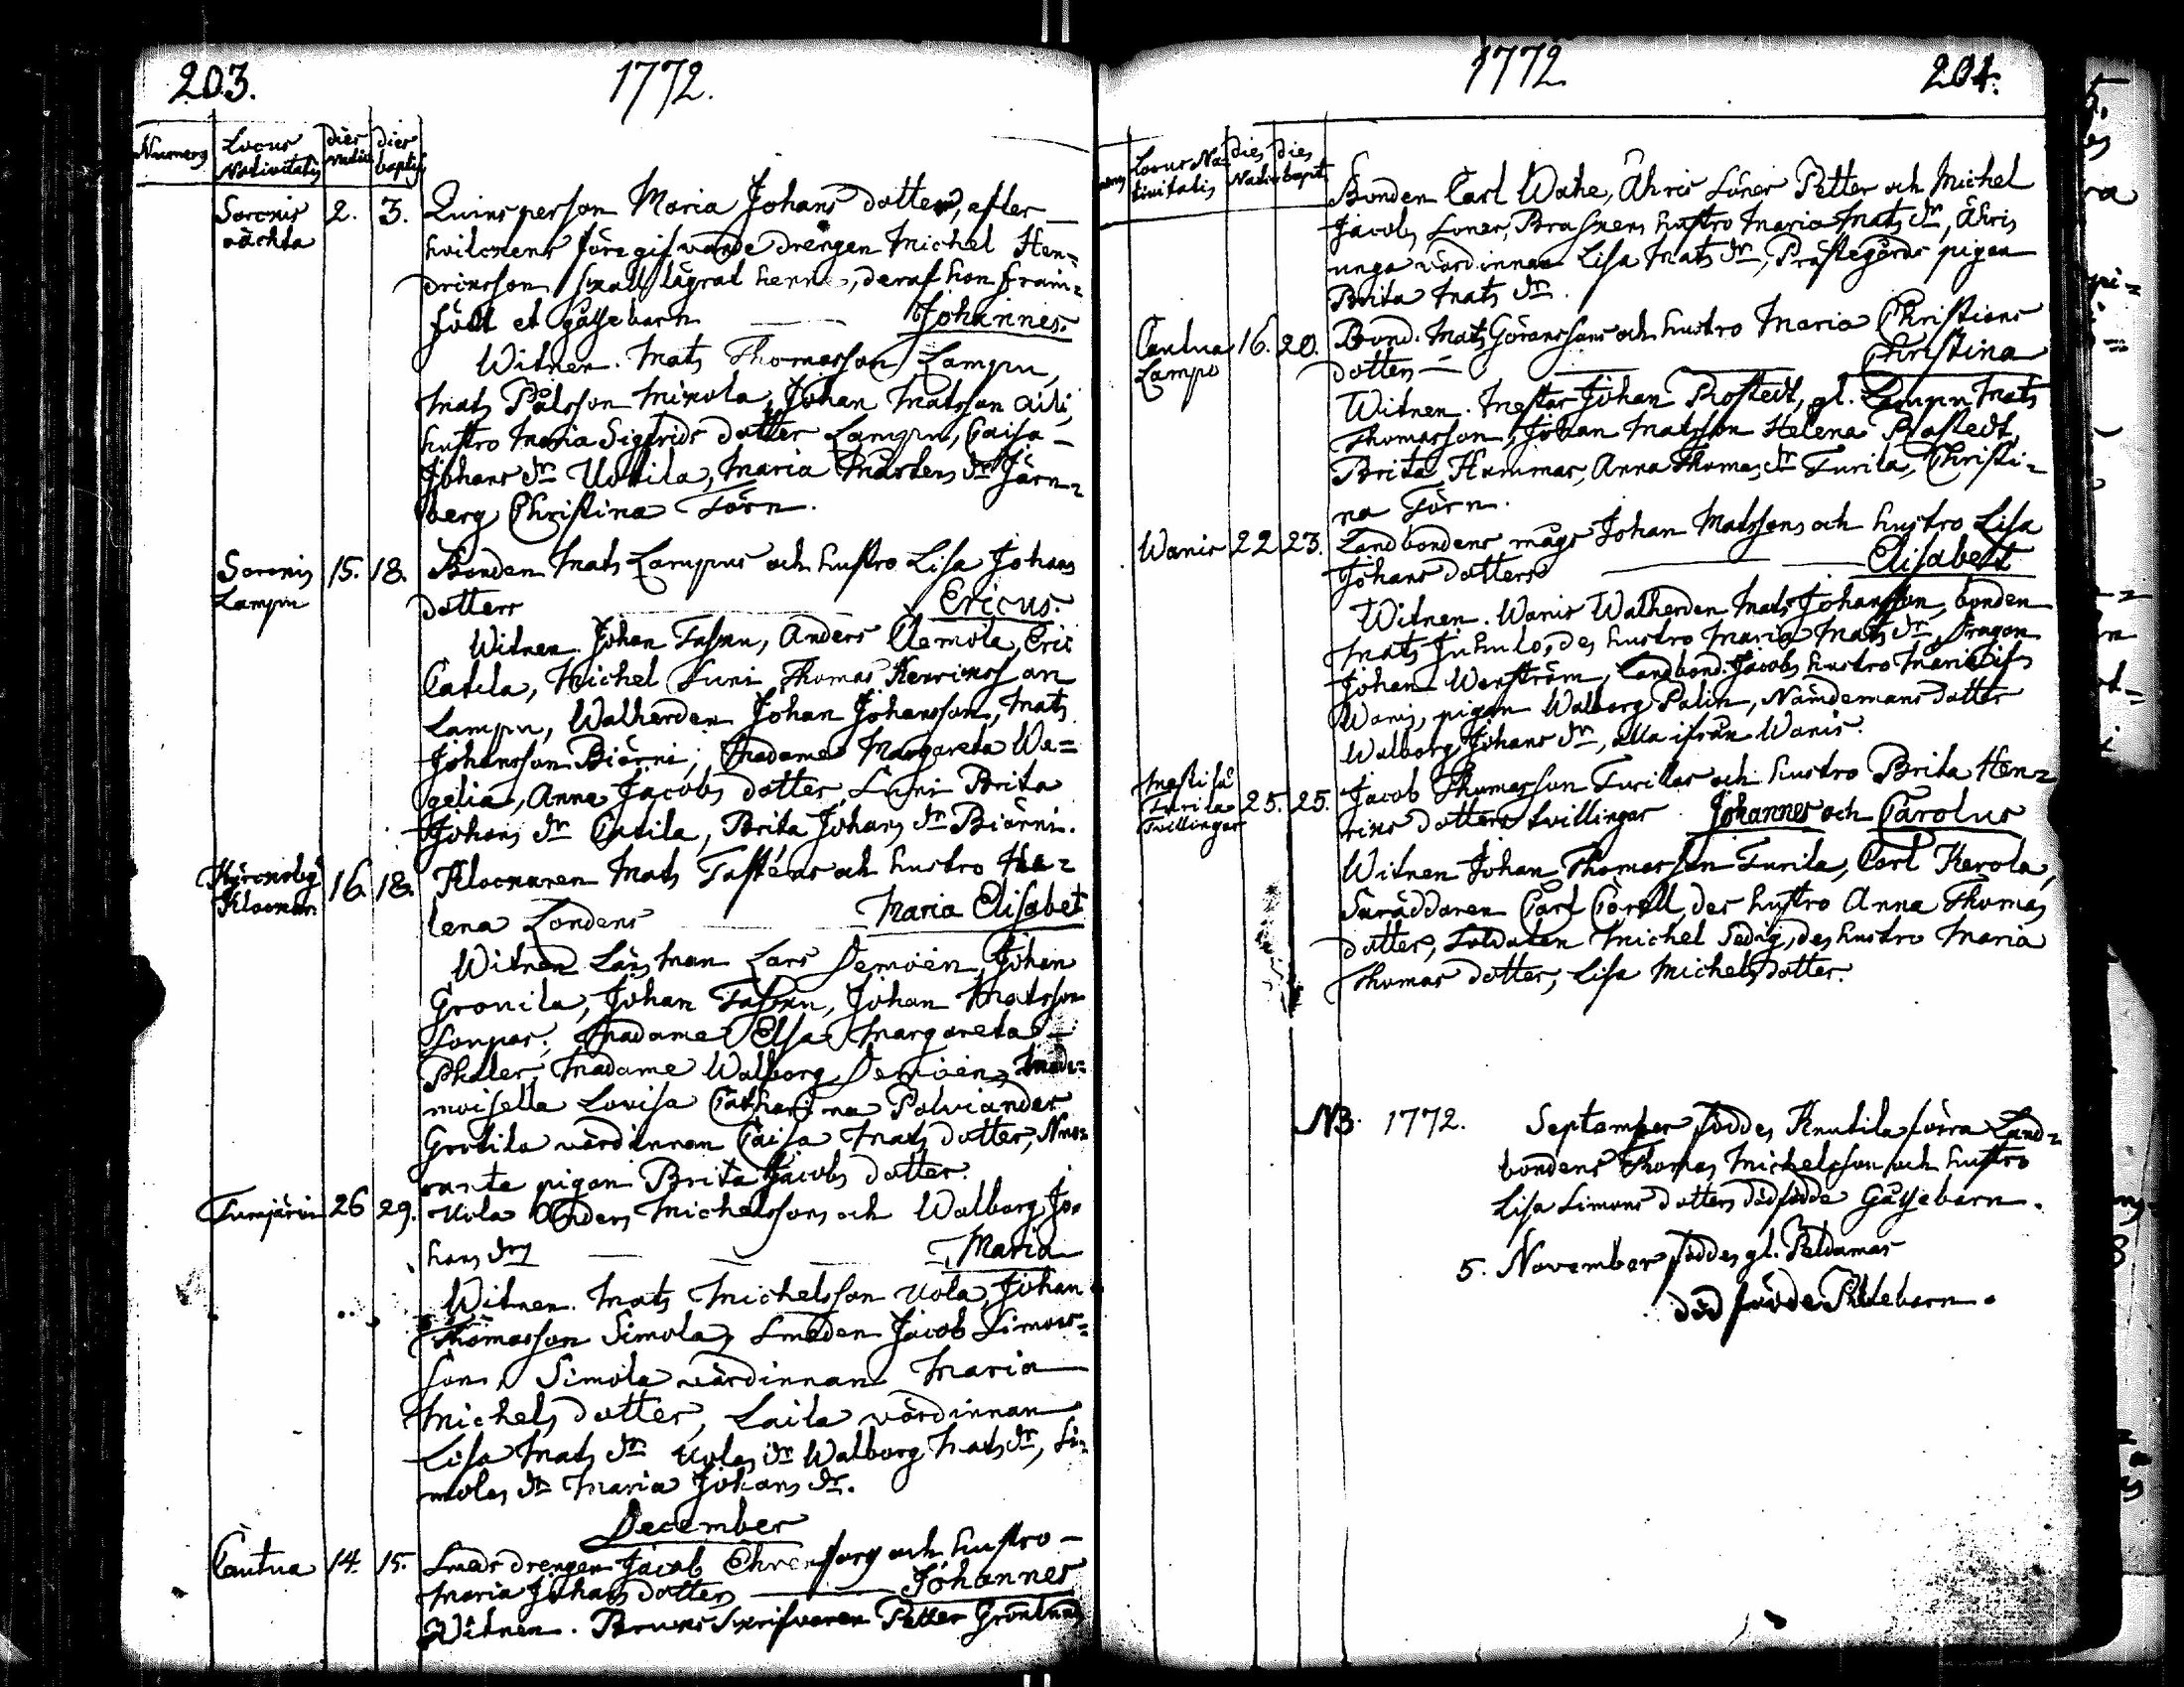 203.
1772.
Numerus
Locus Nativitatis
dies nativ.
dies baptis
Sorenis 2. 3. Quins person Maria Johans dotter, efter
hvilckens föregifvande drengen Michel Hen=
drickson skall lägrat henne, deraf hon fram=
födt et gåssebarn — Johannes.
Witnen. Mats Thomasson Lampu,
Mats Pålsson Mickola, Johan Matsson
hustro Maria Sigfrids dotter Lampu, Caisa
Johans dr Uotila, Maria Mårtens dr Järn=
berg Christina Törn.
Sorenis Lampu 15. 18. Bonden Mats Lampus och hustro Lisa Johans
dotters — Ericus.
Witnen. Johan Tasku, Anders Clemola, Eric
Catila, Michel Suni Thomas Henricksson
Lampu, Walherden Johan Johansson, Mats
Johansson Biörni, Madame Margareta We=
gelia, Anna Jacobs dotter Suni Brita
Johans dr Catila, Brita Johans dr Biörni.
Klockar 16. 18. Klockaren Mats Tasténs och hustro He=
lena Londens — Maria Elisabet
Witnen Läns Man Lars Demoen, Johan
Gronila, Johan Tasku, Johan Matsson
Sonpas; Madame Elsa Margareta
Phaler, Madame Walborg Demoen, Made=
moisella Lovisa Catharina Polviander
Grotila värdinnan Caisa Mats dotter,
pigan Brita Jacobs dotter.
Turnjärvi 26 29. Uola Anders Michelssons och Walborg Jo=
hans drs — Maria
Witnen. Mats Michelsson Uola, Johan
Thomasson Simola, Smeden Jacob Simons=
son, Simola värdinnan Maria
Michels dotter, Laila värdinnan
Lisa Mats dr Uolas dr Walborg Mats dr, Si=
molas dr Maria Johans dr.
December
Cautua 14. 15. Smeds drengen Jacob Ehrensorg och hustro
Maria Johans dotters — Johannes
Witnen. Bruks Skrifvaren Petter Grönlund
1772
204.
Locus Nativitatis
dies Nativ
dies bapt.
Bonden Carl Wahe, Åhris Söner Petter och Michel
Jacobs Soner, Braskens hustro Maria Mats dr, Åhris
unga värdinnan Lisa Mats dr, Prästegårds pigan
Brita Mats dr.
Cautua Lampo 16. 20. Bond. Mats Göranssons och hustro Maria Christians
dotters — Christina
Witnen. Mestar Johan Rostedt, gl. Lampu Mats
Thomasson, Johan Matsson Helena Rostedt,
Brita Hammar, Anna Thomas dr Turila, Christi=
na Törn.
Wanis 22 23. Landbondens mågs Johan Matssons och hustro Lisa
Johans dotters — Elisabeth
Witnen. Wanis Walherden Mats Johansson, bonden
Mats Juhulo, des hustro Maria Mats dr, Dragon
Johan Wenström, Landbond: Jacobs hustro Maria
Wanis, pigan Walborg Palin, Nämdemans dotter
Walborg Johans dr, alla ifrån Wanis.
Turila Tvillingar 25. 25. Jacob Thomasson Turilas och hustro Brita Hen=
ricks dotters tvillingar Johannes och Carolus
Witnen Johan Thomasson Turila, Carl Kerola,
Skräddaren Carl Corell, des hustro Anna Thomas
dotter, Soldaten Michel Sedig, des hustro Maria
Thomas dotter, Lisa Michels dotter.
NB. 1772. September föddes Knutila förra Land=
bondens Thomas Michelsson och hustro
Lisa Simons dotters dödfödde Gåssebarn.
5. November föddes gl. Peldamas
död födde Pikebarn.